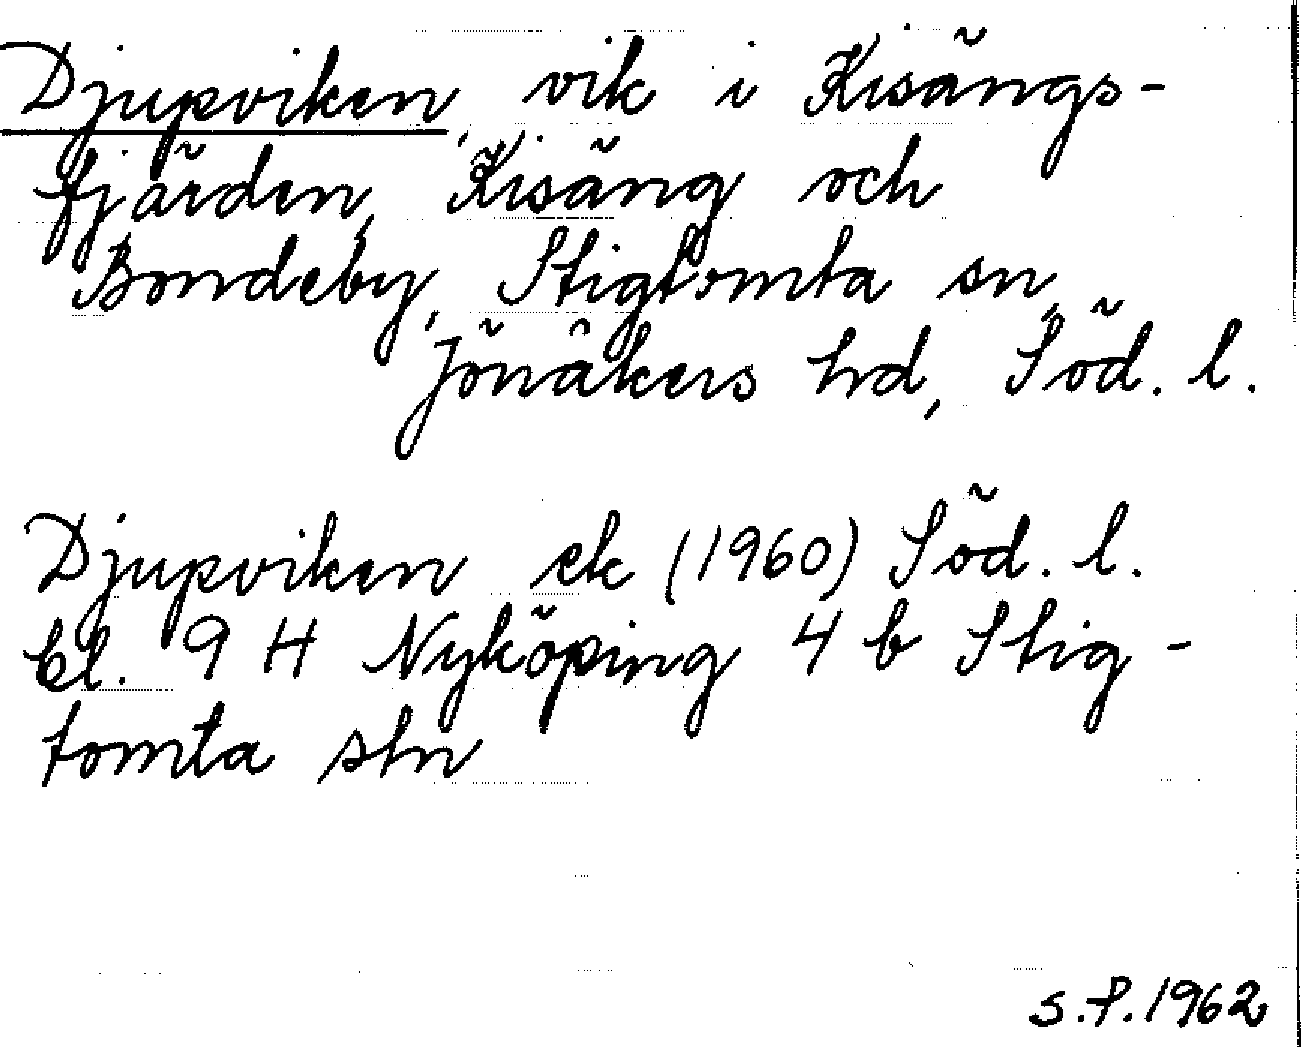 Djupviken, vik i Kisängs-
fjärden, Kisäng och
Bondeby, Stigtomta sn,
Jönåkers hd, Söd. l.
Djupviken ek (1960) Söd. l.
bl. 9 H Nyköping 4 b Stig-
tomta stn
S.P. 1962